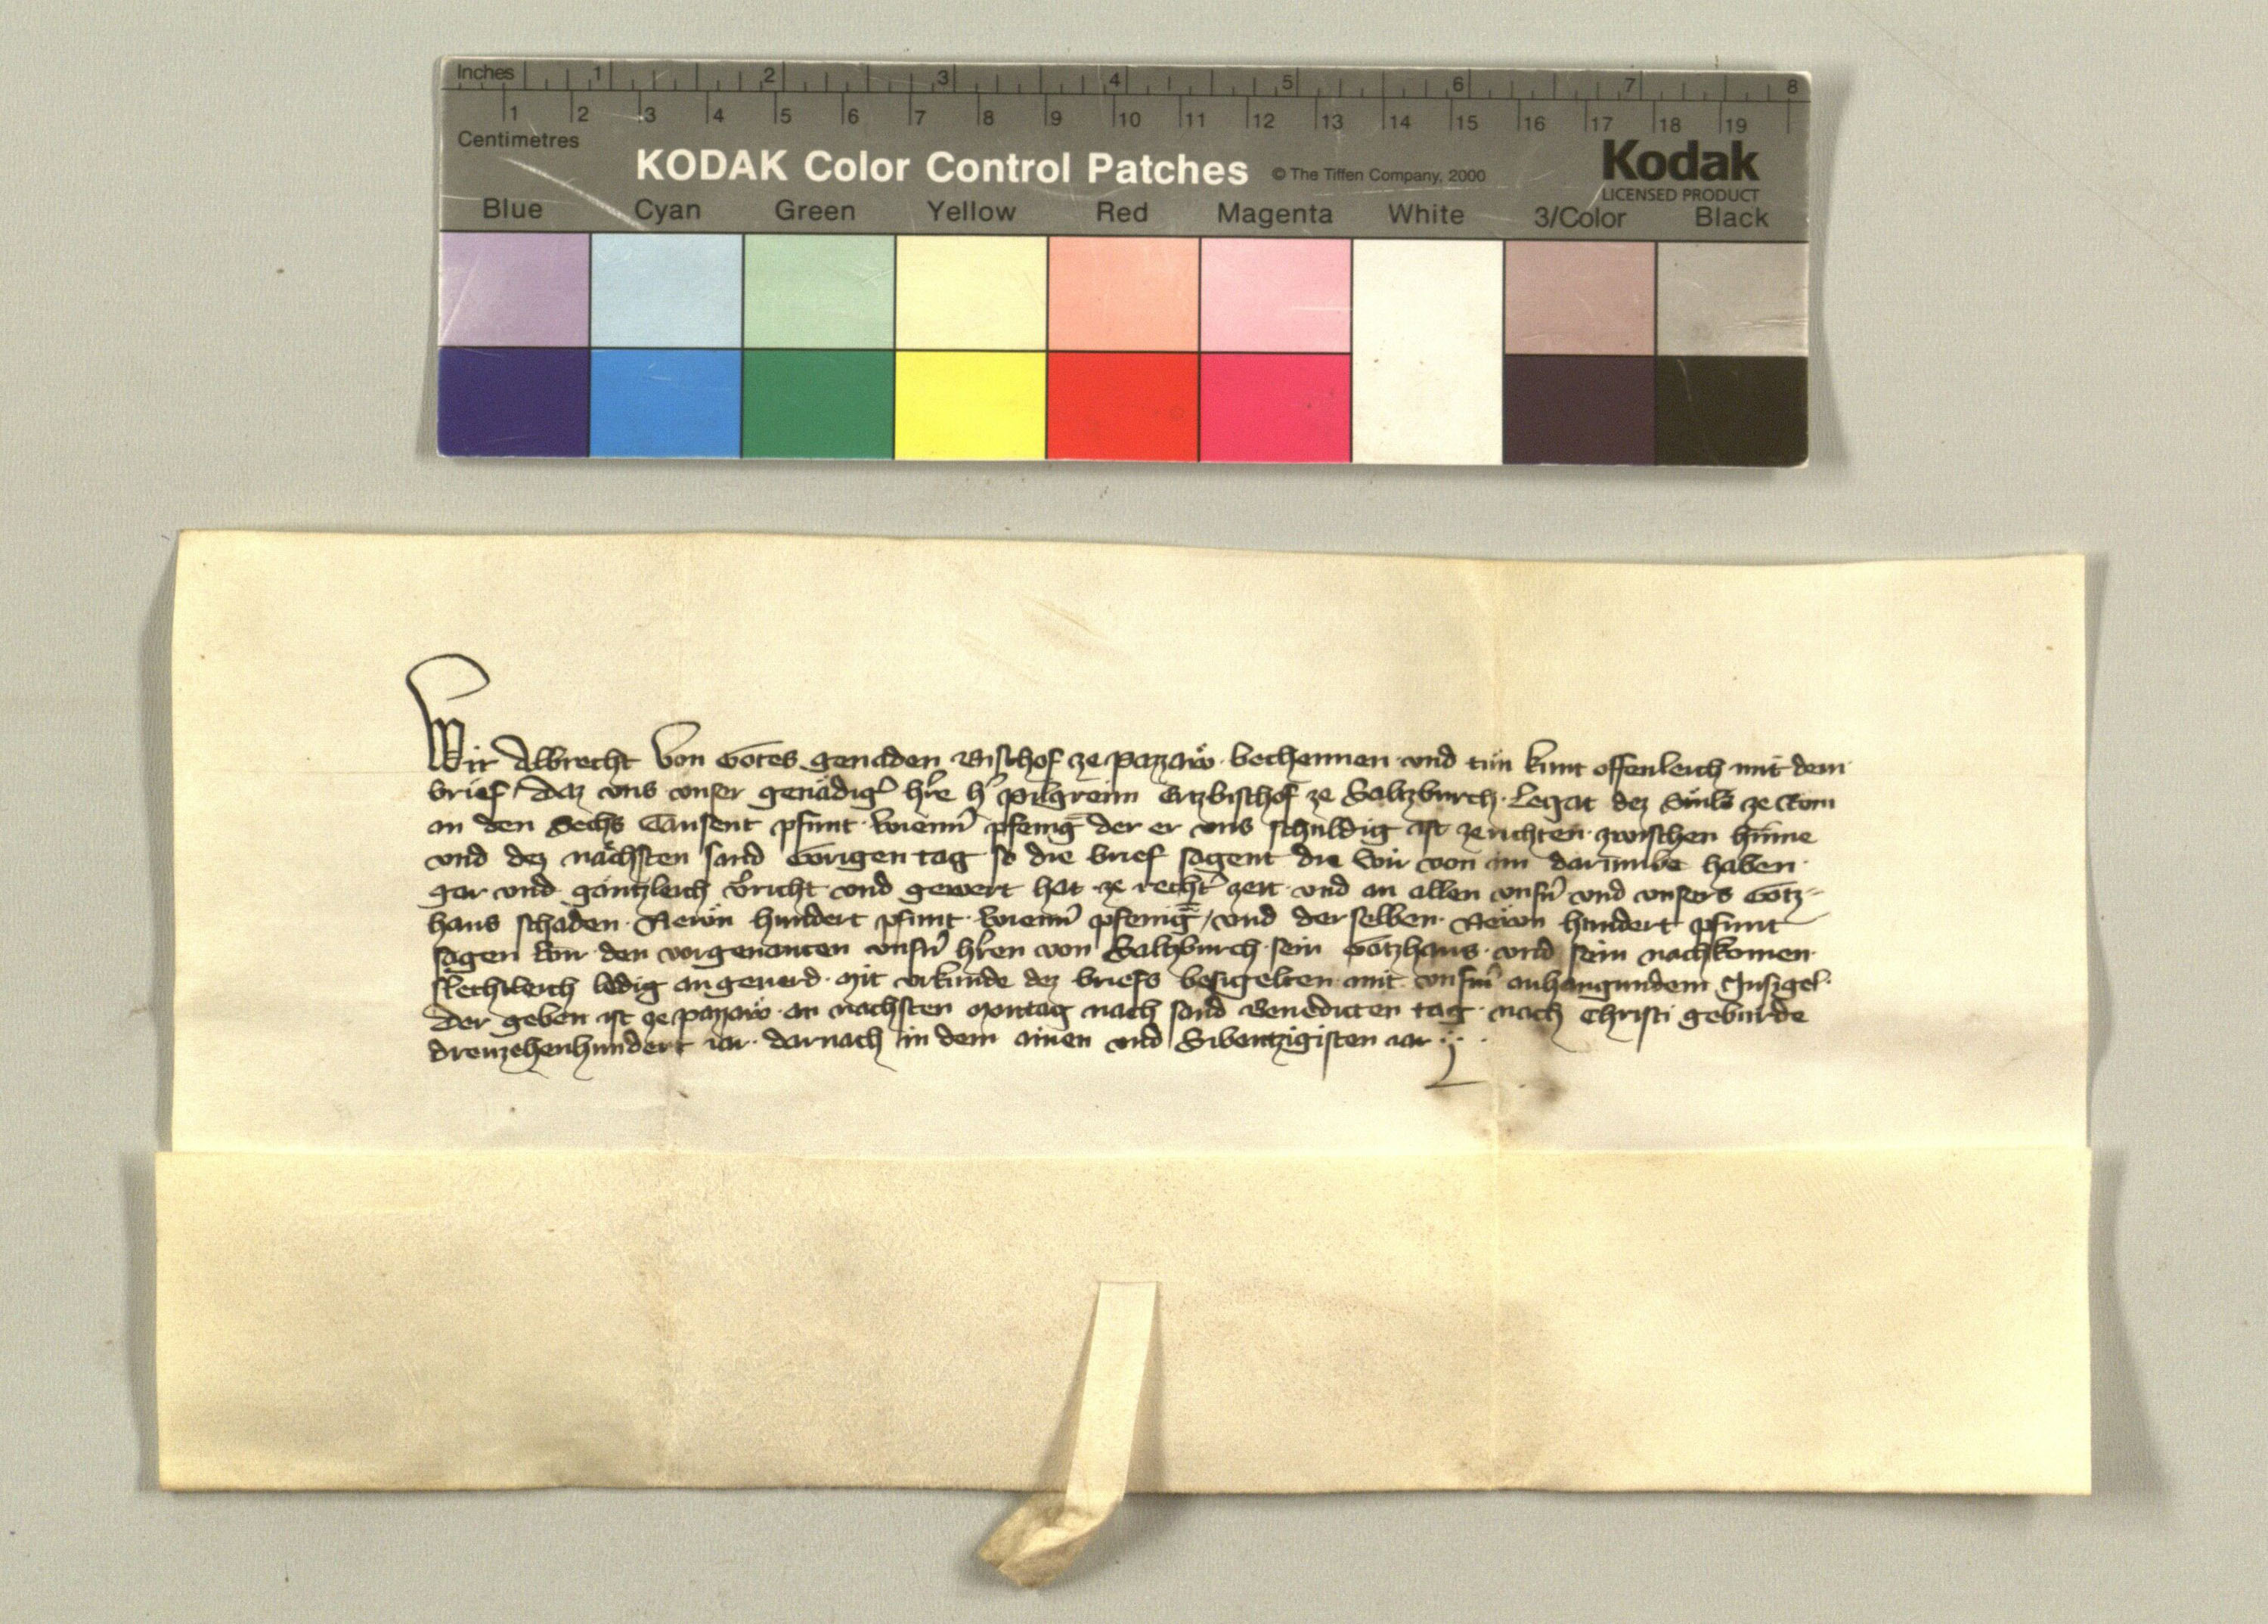 Inches 1 2 3 4 5 6 7 8
1 2 3 4 5 6 7 8 9 10 11 12 13 14 15 16 17 18 19
Centimetres
KODAK Color Control Patches © The Tiffen Company, 2000 Kodak
LICENSED PRODUCT
Blue Cyan Green Yellow Red Magenta White 3/Color Black
Wir Albrecht von Gotes genaden Bischof ze Pazzaẘ bechennen und tůn kunt offenleich mit dem
brief / Daz uns unser genädig̉ hr̉re h̉ Pilgreim Ertzbischof ze Saltzburch Legat dez Stůls ze Rom
an den Sechs Tausent pfunt wienn̉ pfeniḡ der er uns schuldig ist ze richten zwischen hinne
und dez nächsten sand Görigen tag so die brief sagent die wir von im darumbe haben
gar und gäntzleich v̉richt und gewert hat ze recht̉ zeit und an allen unsn̉ und unsers Gotz-
haus schaden Newn hundert pfunt wienn̉ pfeniḡ / und derselben Newn hundert pfunt
sagen wir den vorgenanten unsn̉ hr̉ren von Saltzburch sein Gotzhaus und sein nachkomen
slechtleich ledig an geverd mit urkunde dez briefs besigelten mit unsm̉ anhangundem Insigel
Der geben ist ze Pazzaẘ an nächsten Montag nach sand Benedicten tag nach Christi gebürde
Dreuzehenhundert iar darnach in dem ainen und Sibentzigisten iar